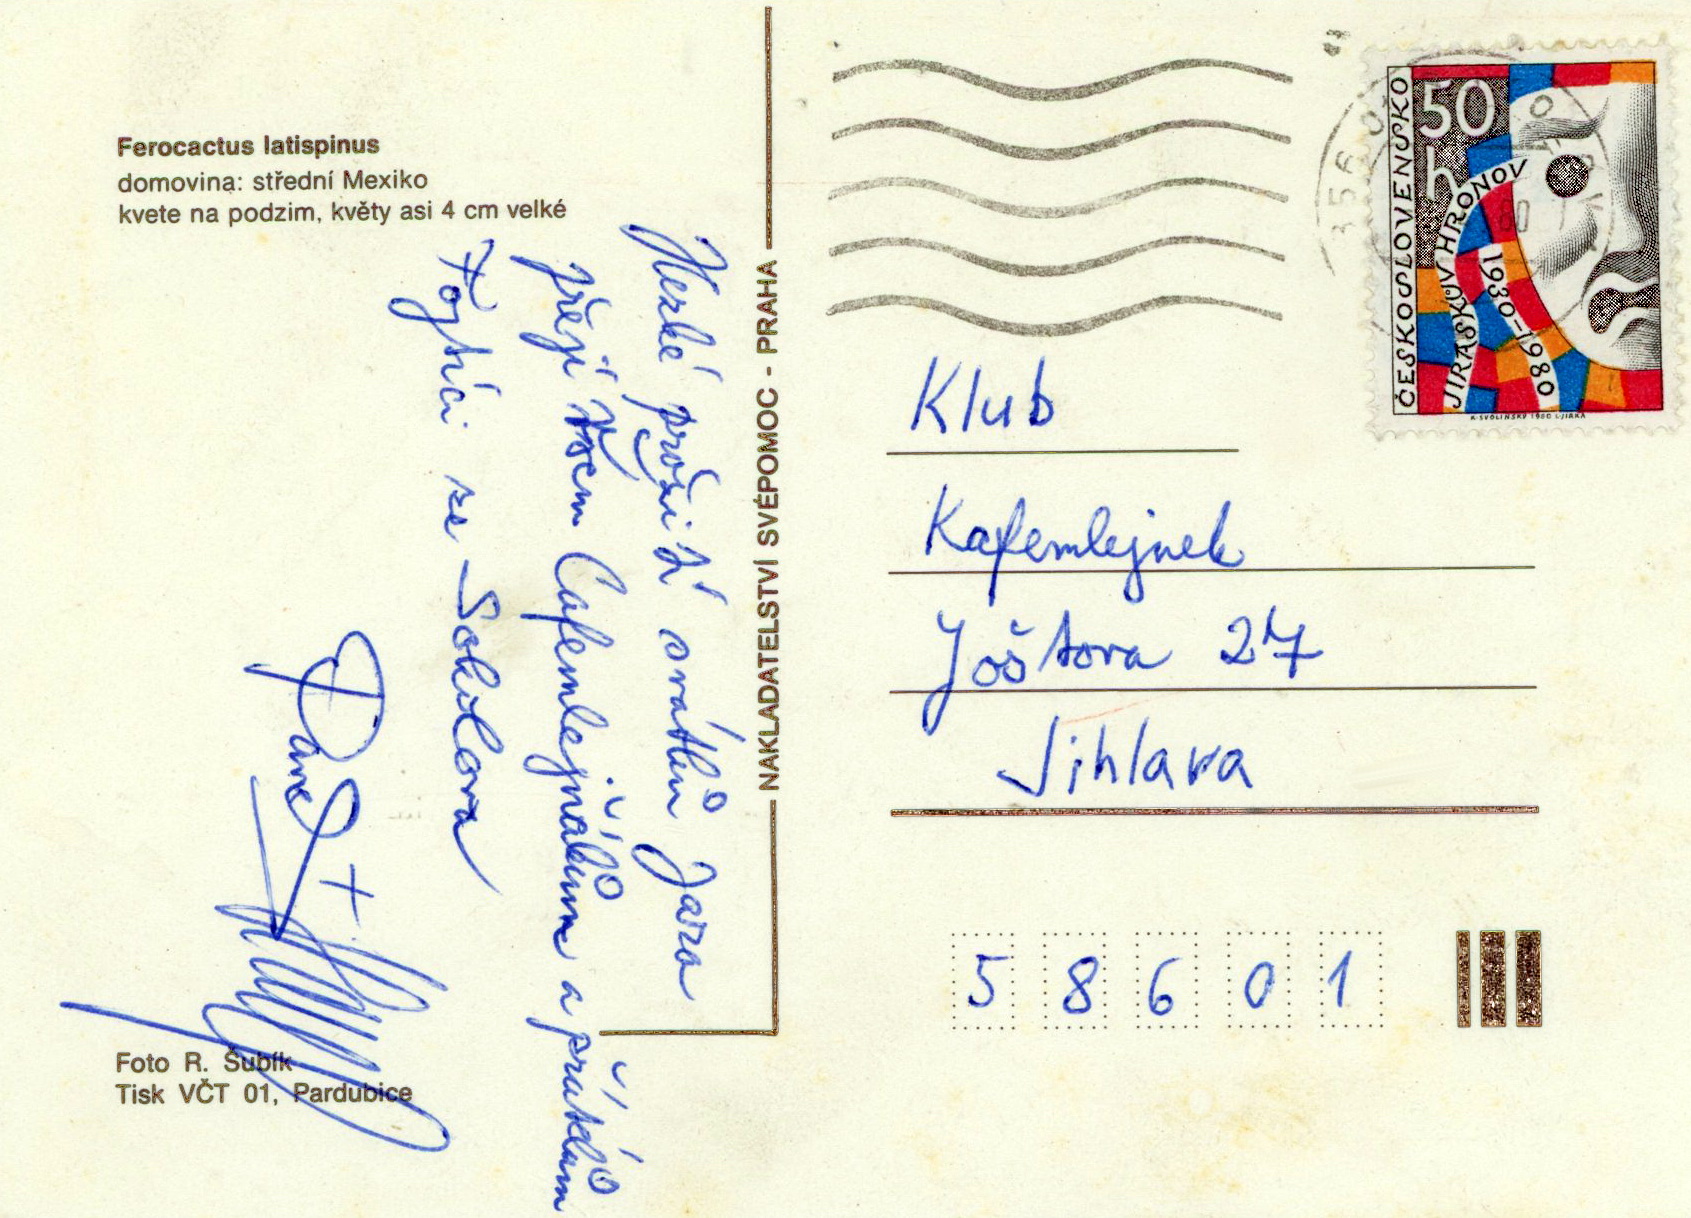 Ferocactus latispinus
domovina: střední Mexiko
kvete na podzim, květy asi 4 cm velké
Hezké prožití svátků jara
přejí všem Cafemlejnáčků a přátelům
Fojtíci ze Sokolova
Pavel +
Foto R. Šubík
Tisk VČT 01, Pardubice
NAKLADATELSTVÍ SVÉPOMOC - PRAHA
ČESKOSLOVENSKO
50 h
JIRÁSKŮV HRONOV
1930-1980
K. SVOLINSKÝ 1980 L. JIRKA
356 0
80
Klub
Kafemlejnek
Jóštova 27
Jihlava
58601